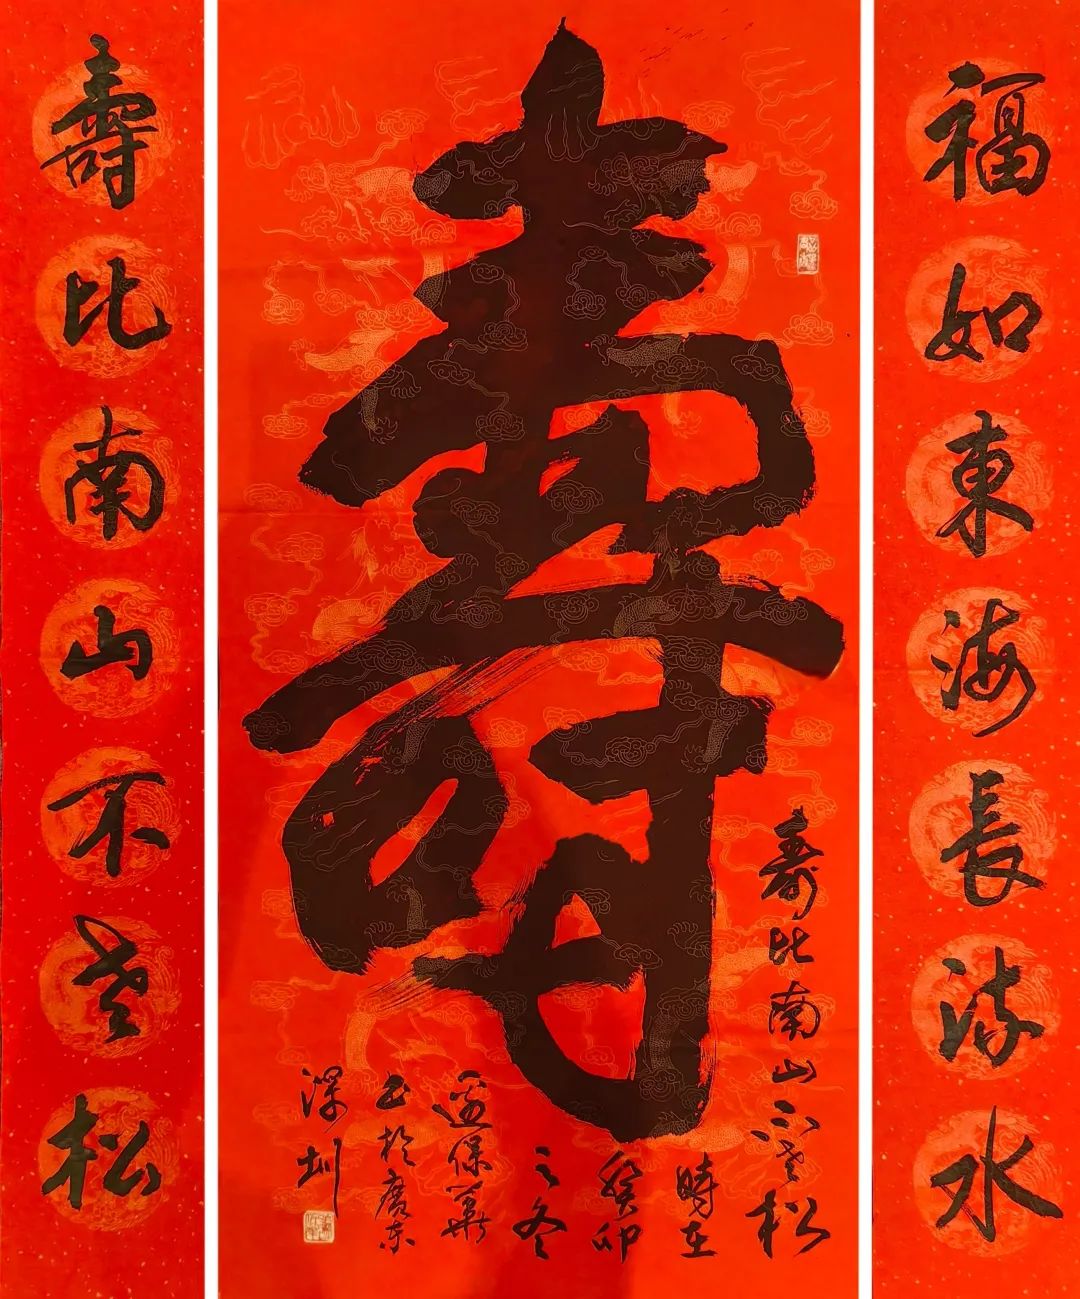 福如東海長流水
壽
壽比南山不老松
時在
癸卯
之冬
保華
书於廣东
深圳
壽比南山不老松